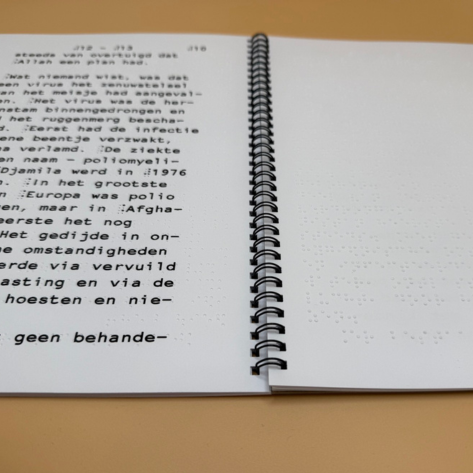 ⠼12 – ⠼13 ⠼10
steeds van overtuigd dat
⠨Allah een plan had.
⠨Wat niemand wist, was dat
een virus het zenuwstelsel
van het meisje had aangeval-
en. ⠨Het virus was de her-
nstam binnengedrongen en
d het ruggenmerg bescha-
d. ⠨Eerst had de infectie
ene beentje verzwakt,
na verlamd. ⠨De ziekte
en naam – poliomyeli-
Djamila werd in ⠼1976
n. ⠨In het grootste
⠨Europa was polio
en, maar in ⠨Afgha-
eerste het nog
Het gedijde in on-
he omstandigheden
erde via vervuild
asting en via de
hoesten en nie-
geen behande-